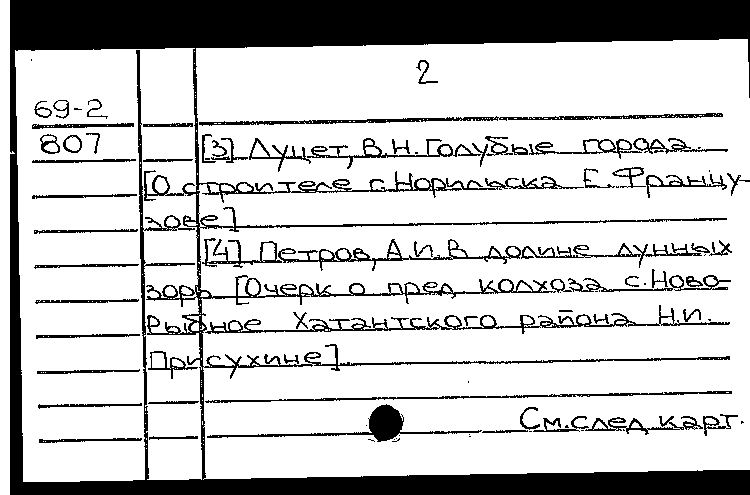 2
69-2
807 [3] Луцет, В.Н. Голубые города.
[О строителе г. Норильска Е. Францу-
зове]
[4] Петров, А.И. В долине лунных
зорь [Очерк о пред. колхоза с. Ново-
Рыбное Хатантского района Н.И.
Присухине].
См. след. карт.